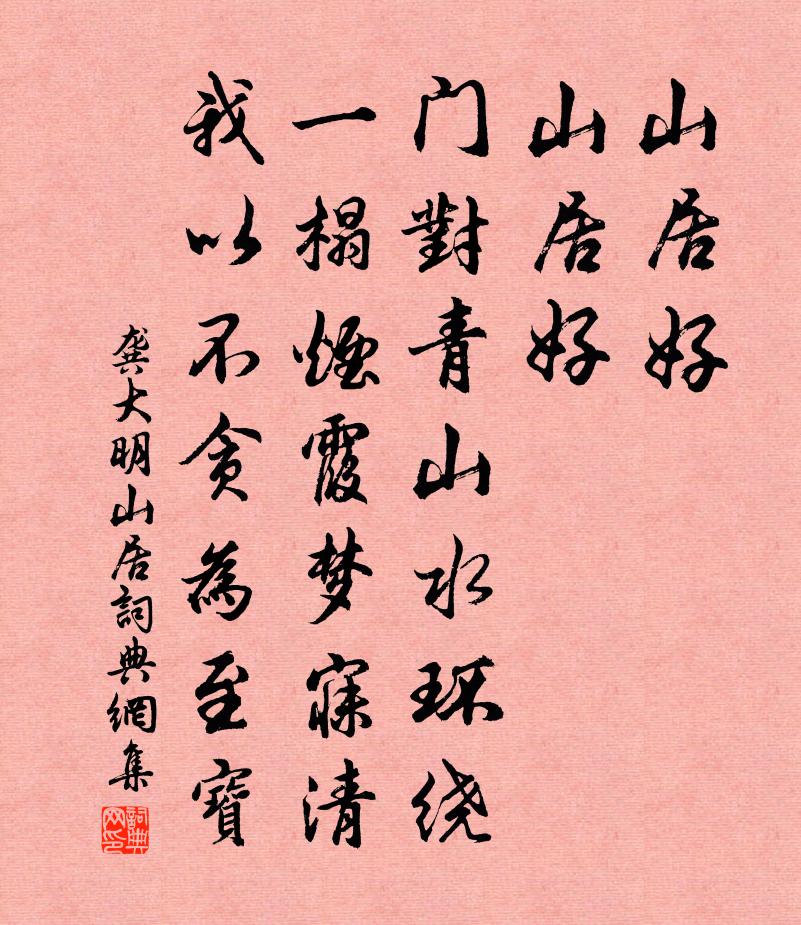 山居好
山居好
门對青山水环绕
一榻煙霞梦寐清
我以不贪為至寶
龚大明山居詞典網集
詞典网印